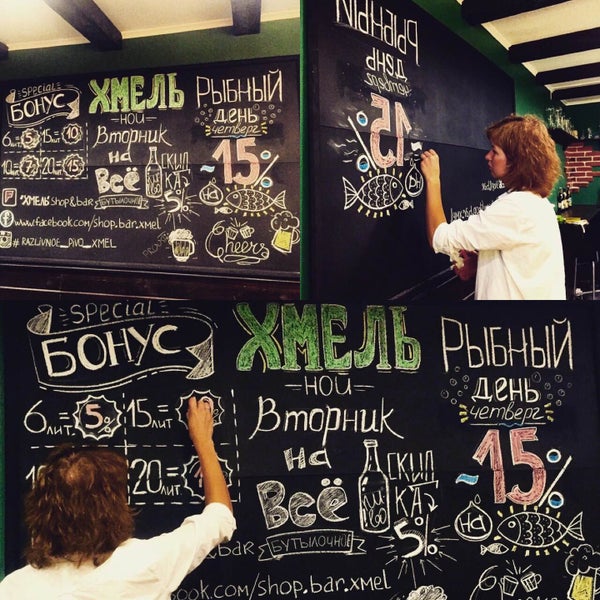 SPECIAL
БОНУС
6л= 5% 15л= 10%
10л= 7% 20л= 15%
ХМЕЛЬ shop&bar
www.facebook.com/shop.bar.xmel
# RAZLIVNOE_PIVO_XMEL
ХМЕЛЬ
-НОЙ-
Вторник
на
Всё
БУТЫЛОЧНОЕ
СКИД
КА
5%
РЫБНЫЙ
ДЕНЬ
четверг
~15%
на
Cheers
РЫБНЫЙ
ДЕНЬ
четверг
15
SPECIAL
БОНУС
6 лит= 5% 15 лит=
20 лит=
&bar
book.com/shop.bar.xmel
ХМЕЛЬ
-НОЙ-
Вторник
на
Всё
БУТЫЛОЧНОЕ
СКИД
КА
5%
РЫБНЫЙ
ДЕНЬ
четверг
~15%
на